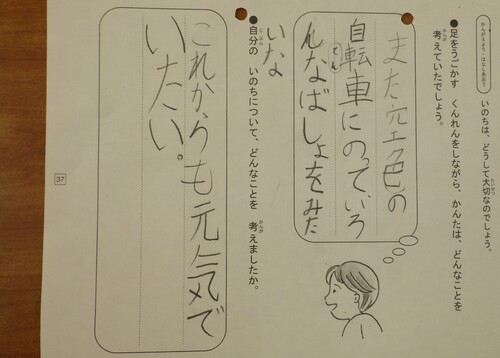 かんがえよう・はなしあおう
いのちは、どうして大切なのでしょう。
●足をうごかす くんれんをしながら、かんたは、どんなことを
考えていたでしょう。
また空色の
自転車にのっていろ
んなばしょをみた
いな
●自分の いのちについて、どんなことを 考えましたか。
これからも元気で
いたい。
37